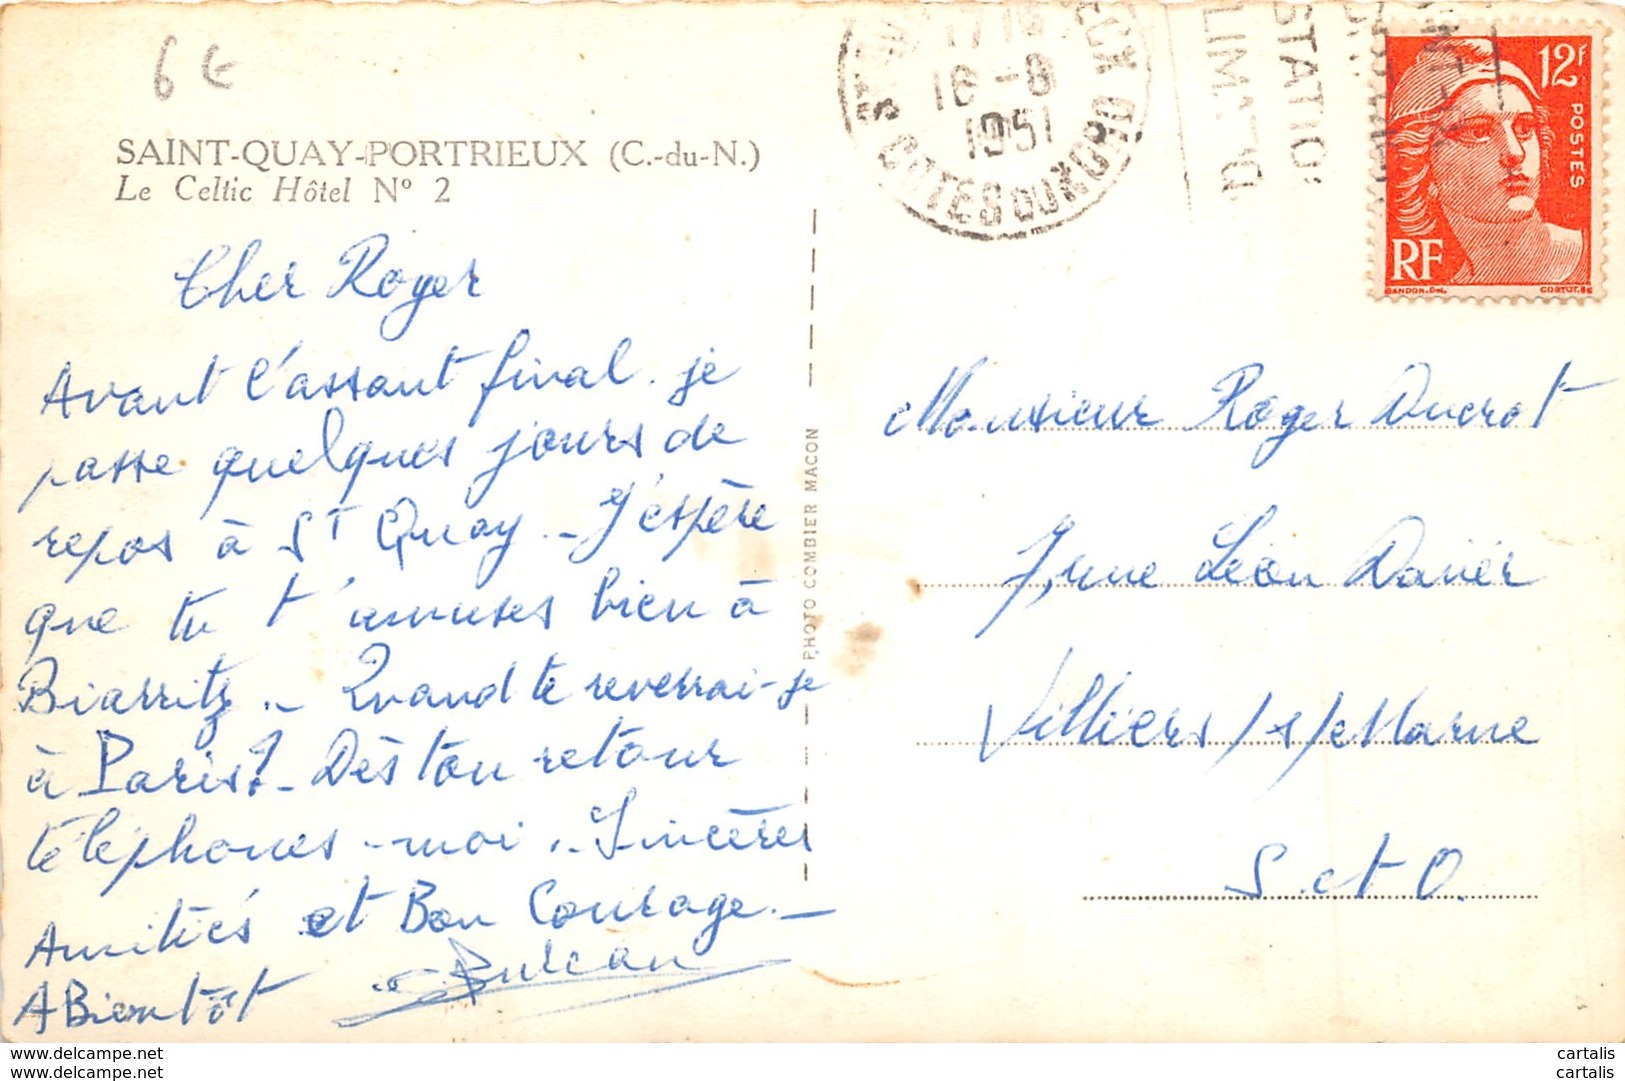 6 €
SAINT-QUAY-PORTRIEUX (C.-du-N.)
Le Celtic Hôtel Nº 2
Cher Roger
Avant l'assaut final je
passe quelques jours de
repos à St Quay - J'espère
que tu t'amuses bien à
Biarritz - Quand te reverrai-je
à Paris? - Dès ton retour
téléphones-moi - Sincères
Amitiés et Bon Courage -
A Bientôt
PHOTO COMBIER MACON
18-8
1951
COTES DU NORD
12F
POSTES
RF
GANDON.Del.
CORTOT.SC
Monsieur Roger Ducrot
7, rue Léon
Villiers/s/Marne
S. et O.
www.delcampe.net
www.delcampe.net
cartalis
cartalis